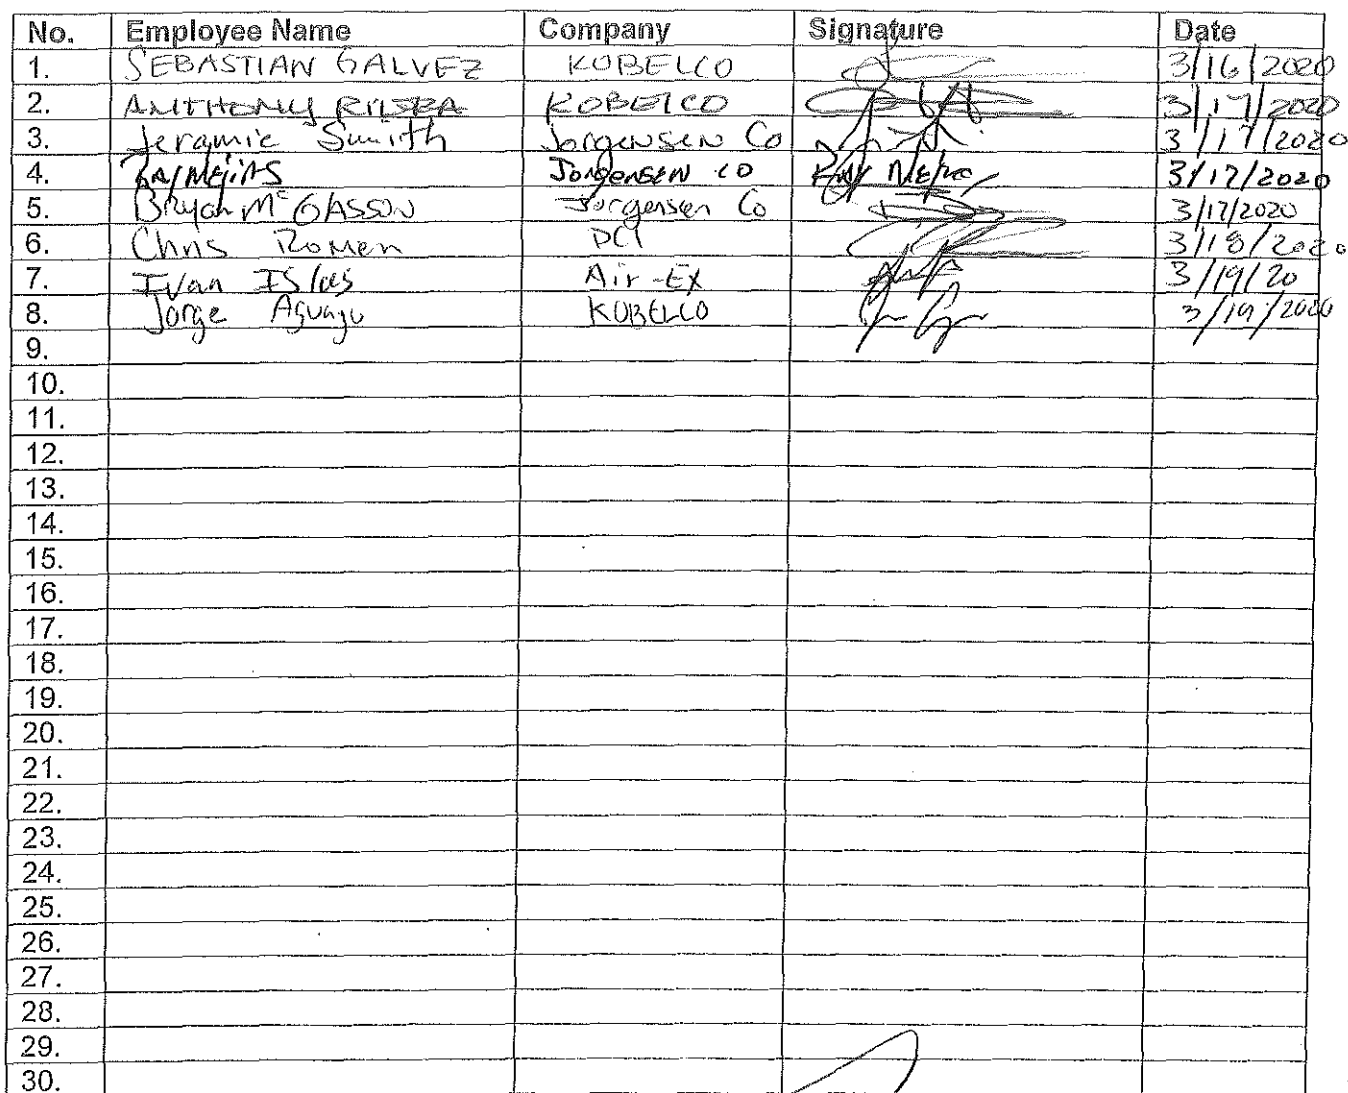 No. Employee Name Company Signature Date
1. SEBASTIAN GALVEZ KOBELCO 3/16/2020
2. ANTHONY KOBELCO 3/17/2020
3. Jeramie Smith Jorgensen Co 3/17/2020
4. Jorgensen co 3/17/2020
5. Bryan McGASSON Jorgensen Co 3/17/2020
6. Chris Romen DCI 3/18/2020
7. Ivan Islas Air-Ex 3/19/20
8. Jorge Aguayo KOBELCO 3/19/2020
9.
10.
11.
12.
13.
14.
15.
16.
17.
18.
19.
20.
21.
22.
23.
24.
25.
26.
27.
28.
29.
30.